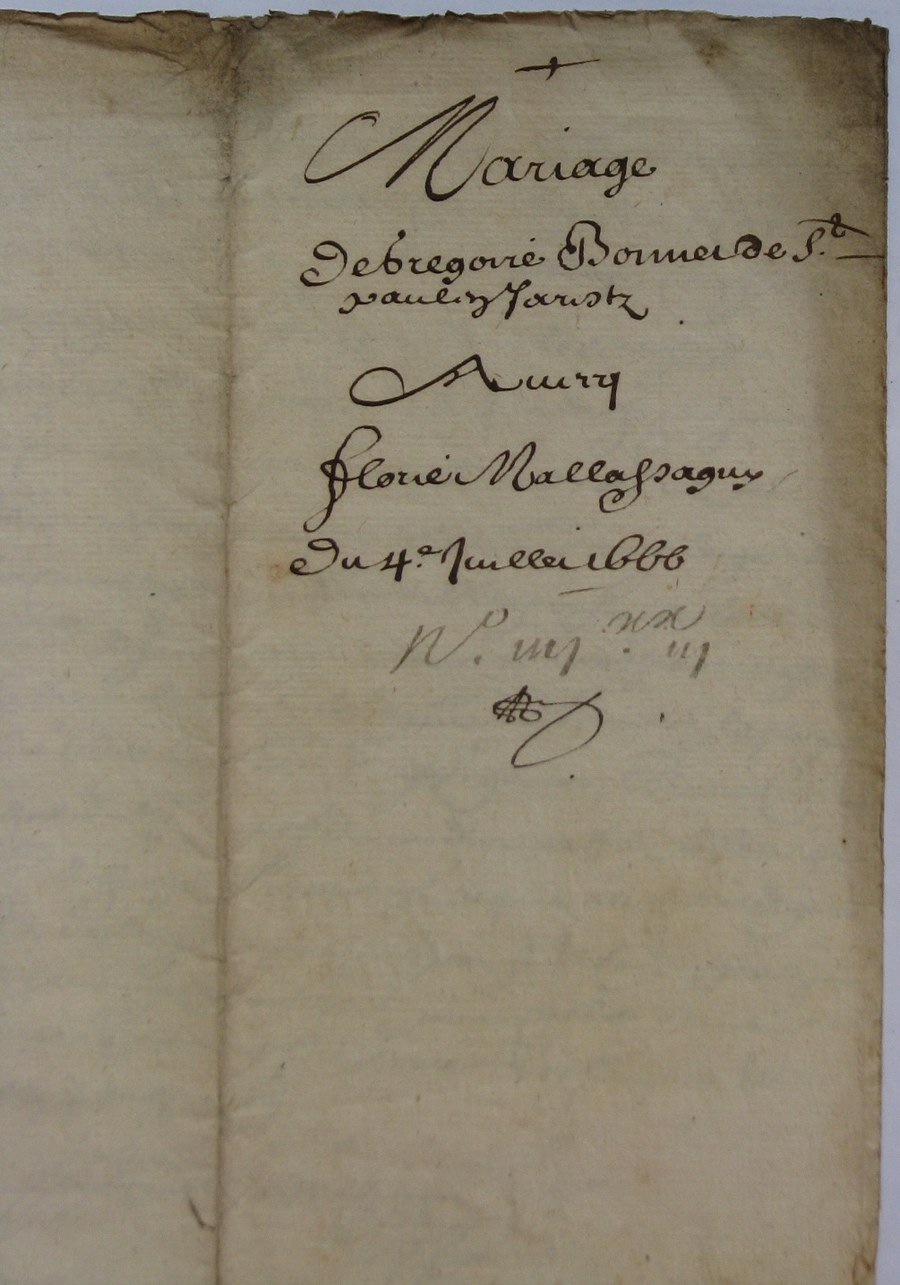 Mariage
De Gregoire Bonnet de S.t
paul en Jarestz
Avecq
florie Mallassagny
Du 4.e Juillet 1666
N.o iiij xx iij